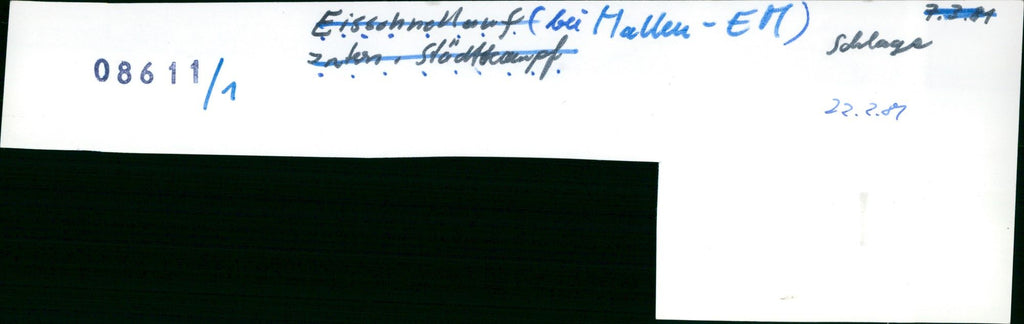 Eisschnellauf (bei Hallen-EM) 7.3.81
intern. Städtekampf Schlage
08611/1
22.2.81